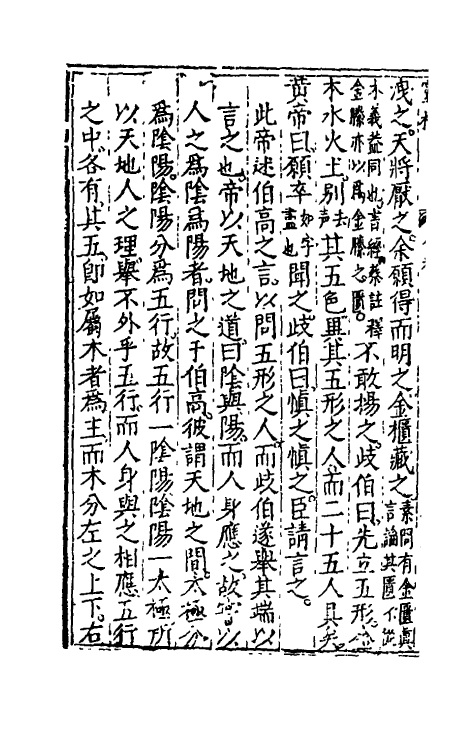 洩之。天將厭之。余願得而明之。金櫃藏之素問有金匱眞言論。其匱不從
木。義益同也。書經蔡註釋金縢亦以爲金縢之匱。不敢揚之。歧伯曰。先立五形。金
木水火土。別去聲其五色。異其五形之人。而二十五人具矣。
黃帝曰。願卒如字盡也聞之。歧伯曰。愼之愼之。臣請言之。
此帝述伯高之言。以問五形之人。而歧伯遂舉其端以
言之也。帝以天地之道。曰陰與陽。而人身應之。故嘗以
人之爲陰爲陽者。問之于伯高。彼謂天地之間。太極分
爲陰陽。陰陽分爲五行。故五行一陰陽。陰陽一太極。所
以天地人之理。舉不外乎五行。而人身與之相應。五行
之中。各有其五。卽如屬木者爲主。而木分左之上下。右